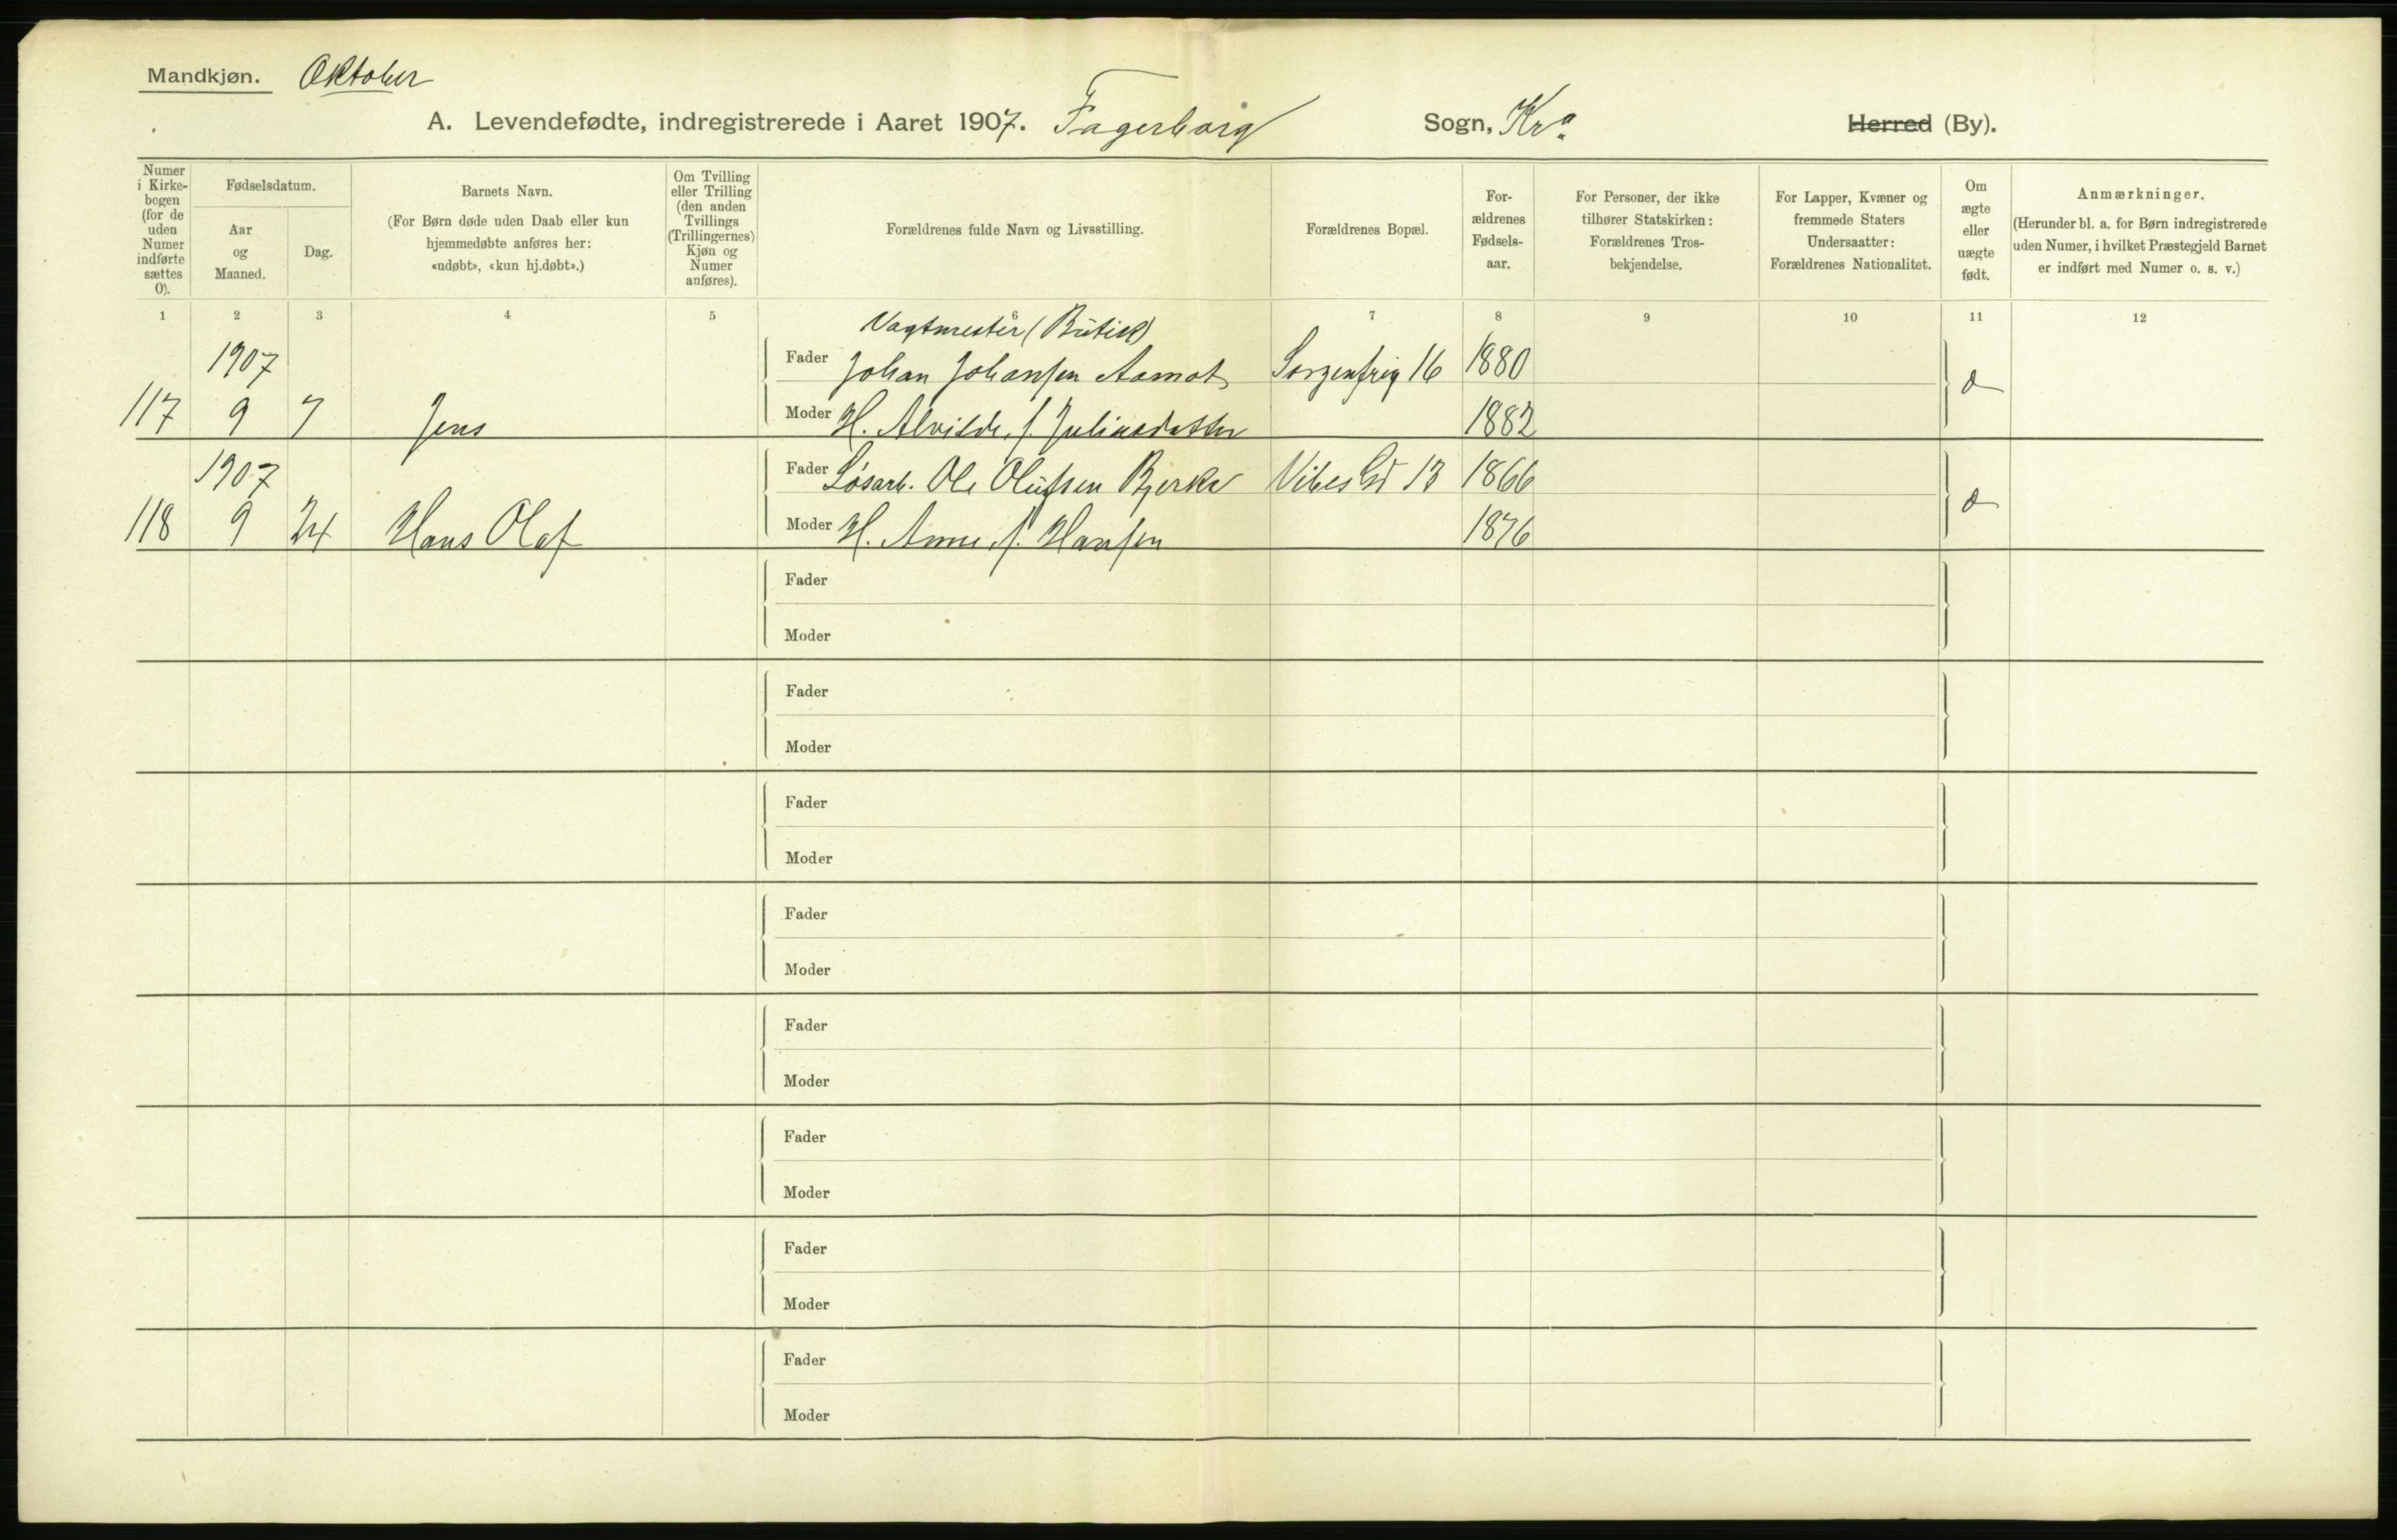 Mandkjøn. Oktober
A. Levendefødte, indregistrerede i Aaret 1907. Fagerborg Sogn, Kra Herred (By).
Numer i Kirke-bogen (for de uden Numer indførte sættes 0).
Fødselsdatum.
Aar og Maaned.
Dag.
Barnets Navn.
(For Børn døde uden Daab eller kun hjemmedøbte anføres her: «udøbt», «kun hj.døbt».)
Om Tvilling eller Trilling (den anden Tvillings (Trillingernes) Kjøn og Numer anføres).
Forældrenes fulde Navn og Livsstilling.
Forældrenes Bopæl.
For-ældrenes Fødsels-aar.
For Personer, der ikke tilhører Statskirken: Forældrenes Tros-bekjendelse.
For Lapper, Kvæner og fremmede Staters Undersaatter: Forældrenes Nationalitet.
Om ægte eller uægte født.
Anmærkninger.
(Herunder bl. a. for Børn indregistrerede uden Numer, i hvilket Præstegjeld Barnet er indført med Numer o. s. v.)
1 2 3 4 5 6 7 8 9 10 11 12
Vagtmester (Butik)
1907 Fader Johan Johansen Aamot Sorgenfrig 16 1880
117 9 7 Jens Moder H. Alvilde f. Juliusdatter 1882
1907 Fader Løsarb. Ole Olufsen Bjerke Vibes Gd 13 1866
118 9 24 Hans Olaf Moder H. Anne f. Hansen 1876
Fader
Moder
Fader
Moder
Fader
Moder
Fader
Moder
Fader
Moder
Fader
Moder
Fader
Moder
Fader
Moder